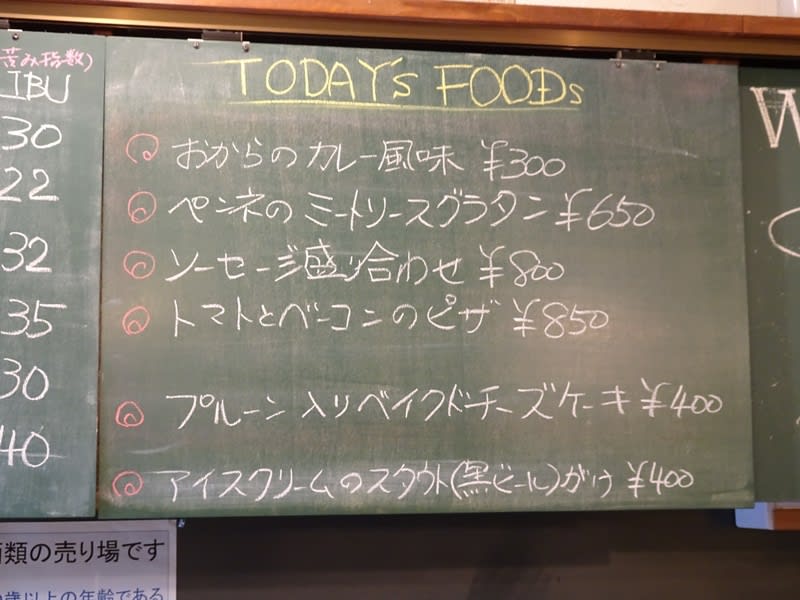 苦み指数)
IBU
30
22
32
35
30
40
TODAY'S FOODs
おからのカレー風味 ¥300
ペンネのミートソースグラタン ¥650
ソーセージ盛り合わせ ¥800
トマトとベーコンのピザ ¥850
プルーン入りベイクドチーズケーキ ¥400
アイスクリームのスタウト(黒ビール)がけ ¥400
W
類の売り場です
歳以上の年齢である